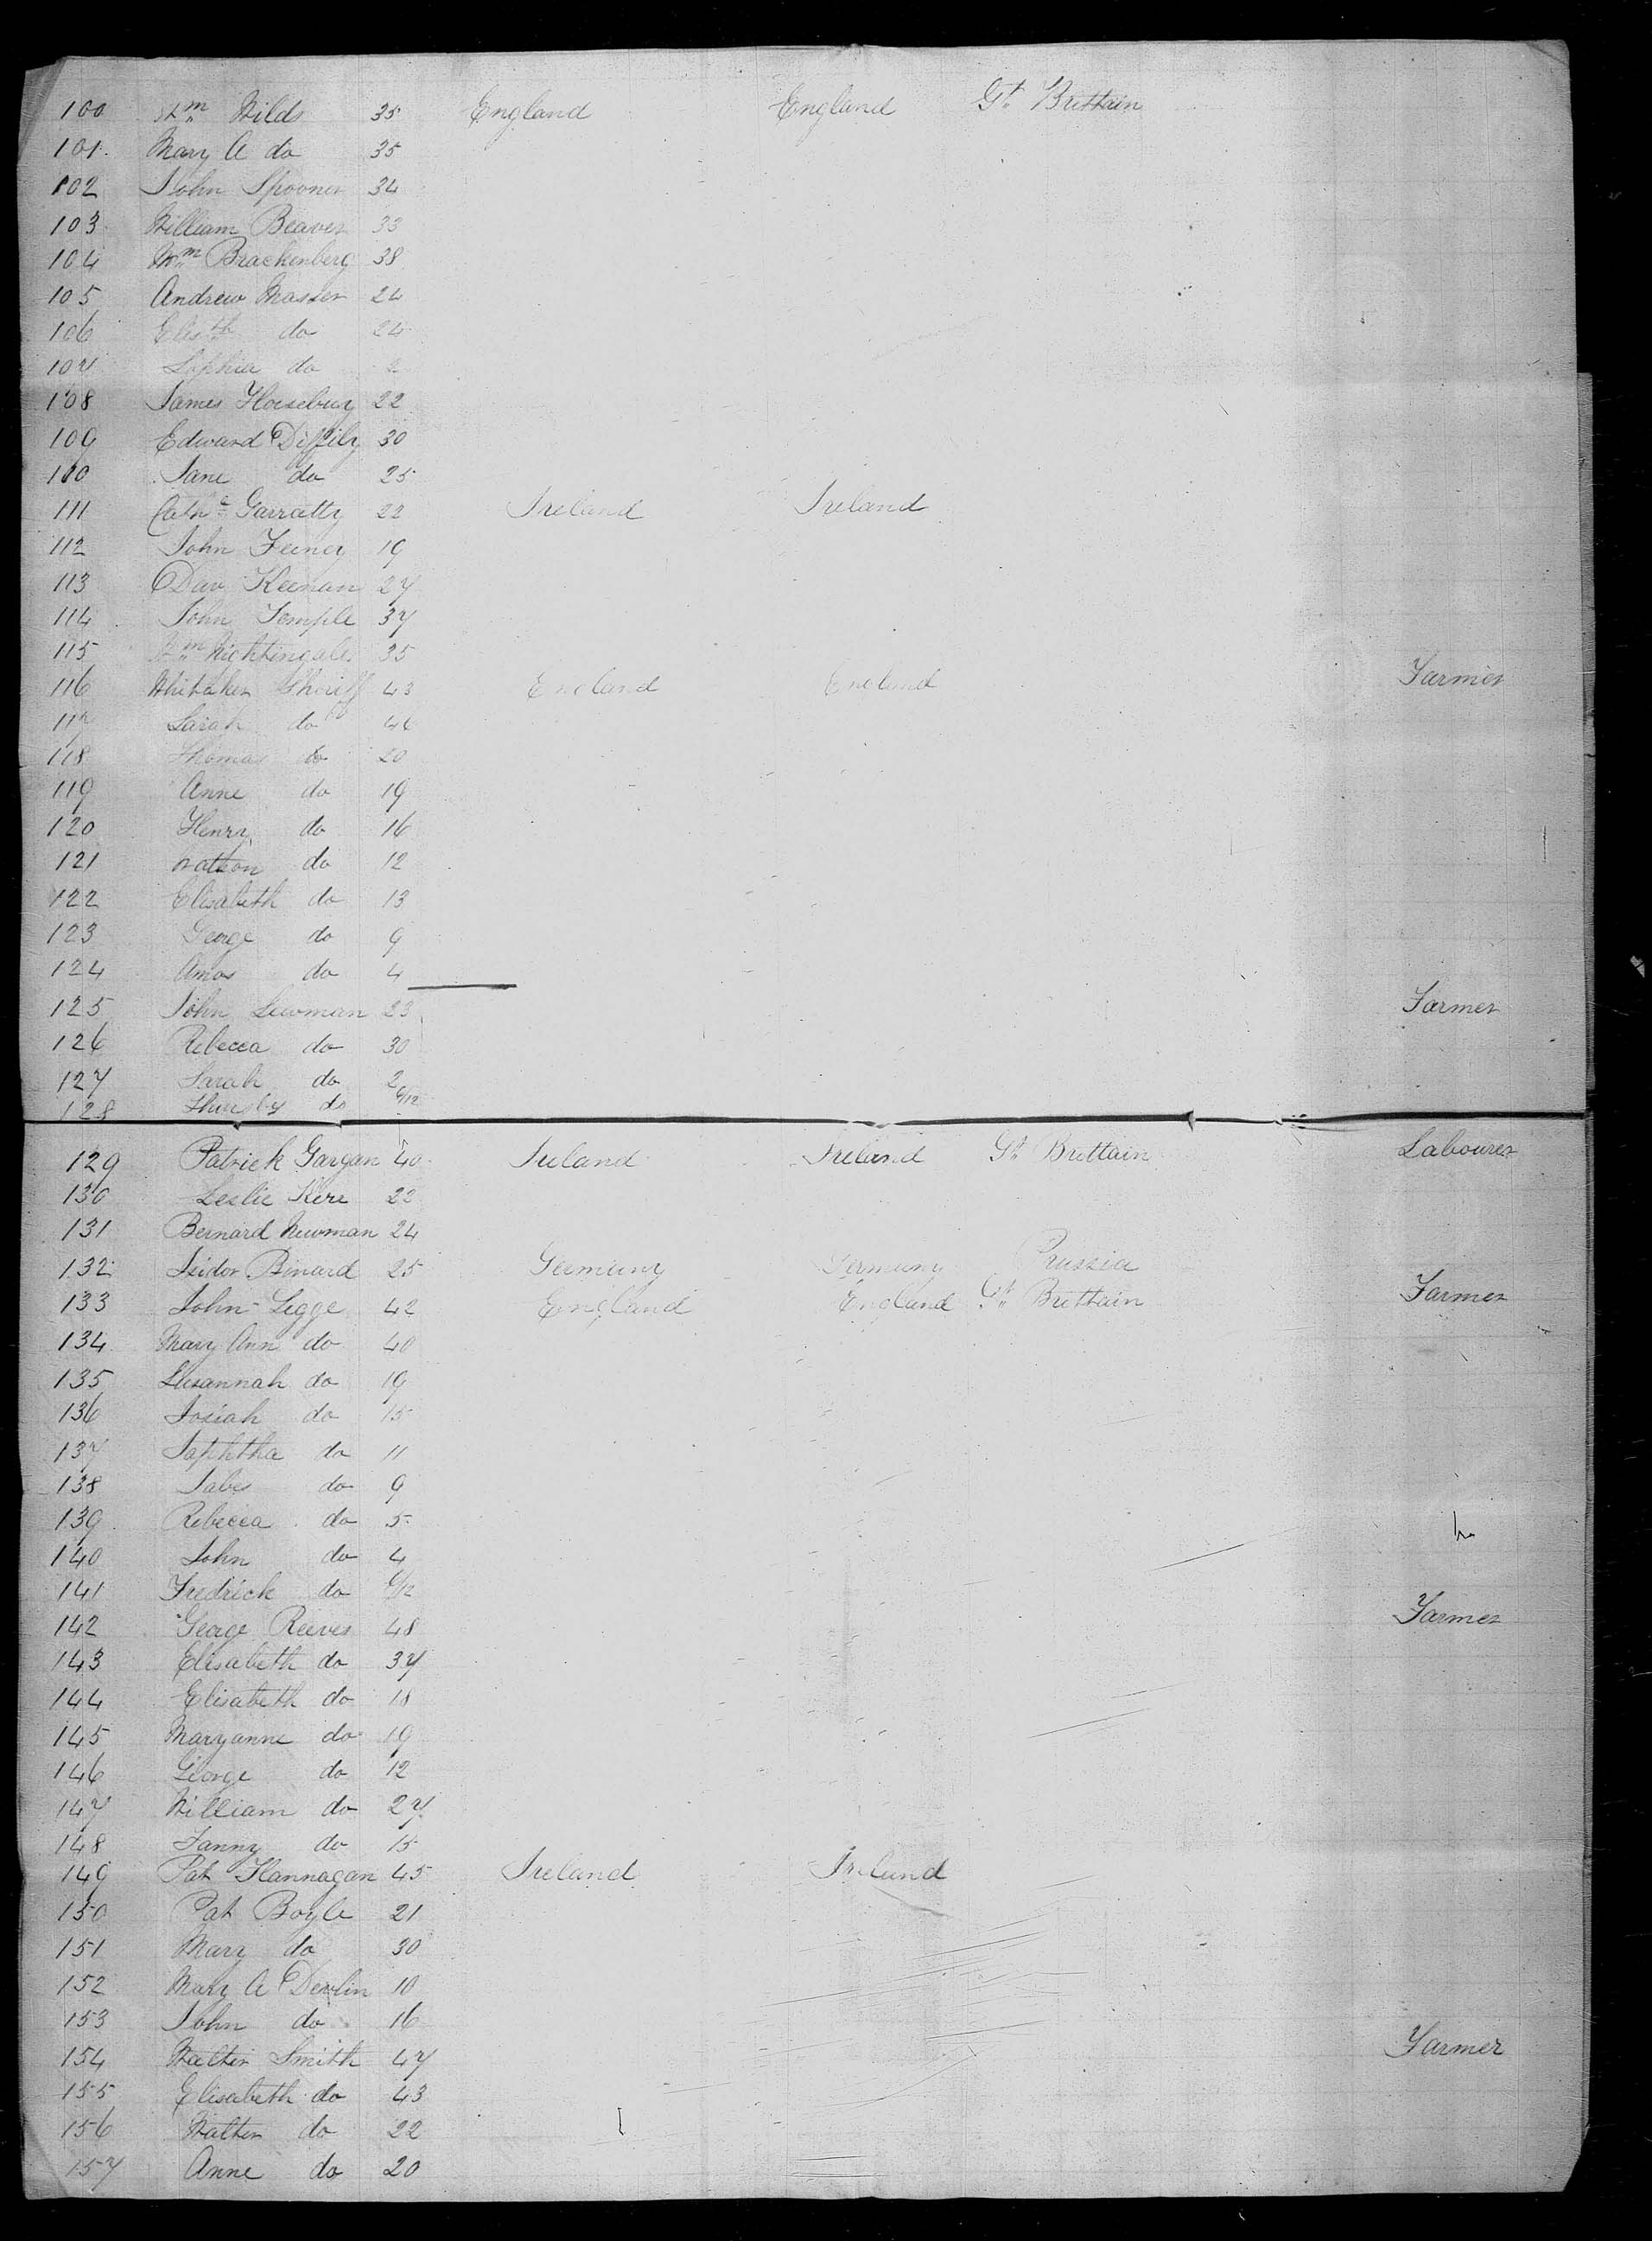 100 Wm Wilds 35 England England Gt Brittain
101. Mary A do 35
102 John Spooner 34
103 William Beaver 33
104 Wm Brackenberg 38
105 Andrew Masser 24
106 Elisth do 24
107 Sophia do 2
108 James Horsebury 22
109 Edward Diffily 30
110 Jane do 25
111 Cathe Garratty 22 Ireland Ireland
112 John Feeney 19
113 Dav Keenan 27
114 John Temple 37
115 Wm Nightingale 35
116 Whitaker 43 England England Farmer
117 Sarah do 46
118 Thomas do 20
119 Anne do 19
120 Henry do 16
121 Watson do 12
122 Elisabeth do 13
123 George do 9
124 Amos do 4
125 John Lewman 23 Farmer
126 Rebecca do 30
127 Sarah do 2
128 Thursby do 6/12
129 Patrick Gargan 40 Ireland Ireland Gt Brittain Labourer
130 Leslie Kere 22
131 Bernard Newman 24
132 Isidor Binard 25 Germany Germany Prussia
133 John Legge 42 England England Gt Brittain Farmer
134 Mary Ann do 40
135 Susannah do 19
136 Josiah do 15
137 Japhtha do 11
138 Jabes do 9
139 Rebecca do 5
140 John do 4
141 Fredrick do 6/12
142 George Reeves 48 Farmer
143 Elisabeth do 37
144 Elisabeth do 18
145 Maryanne do 19
146 George do 12
147 William do 27
148 Fanny do 15
149 Pat Flannagan 45 Ireland Ireland
150 Pat Boyle 21
151 Mary do 30
152 Mary A Devlin 10
153 John do 16
154 Walter Smith 47 Farmer
155 Elisabeth do 43
156 Walter do 22
157 Anne do 20